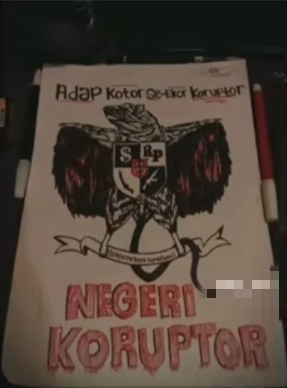 Adap Kotor Se-Ekor Koruptor
$ Rp
NEGERI
KORUPTOR